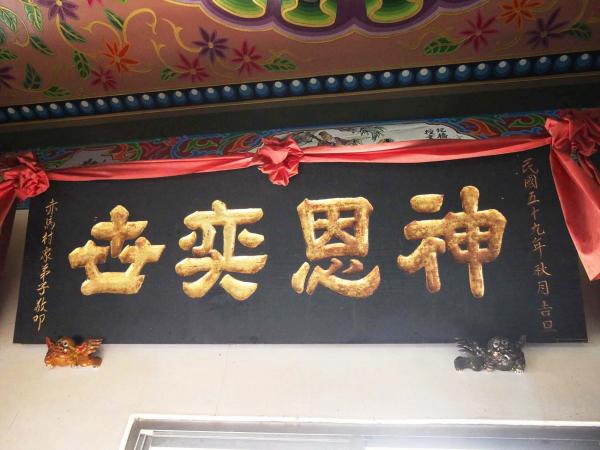 民國五十九年秋月吉旦
神恩奕世
赤馬村眾弟子敬叩